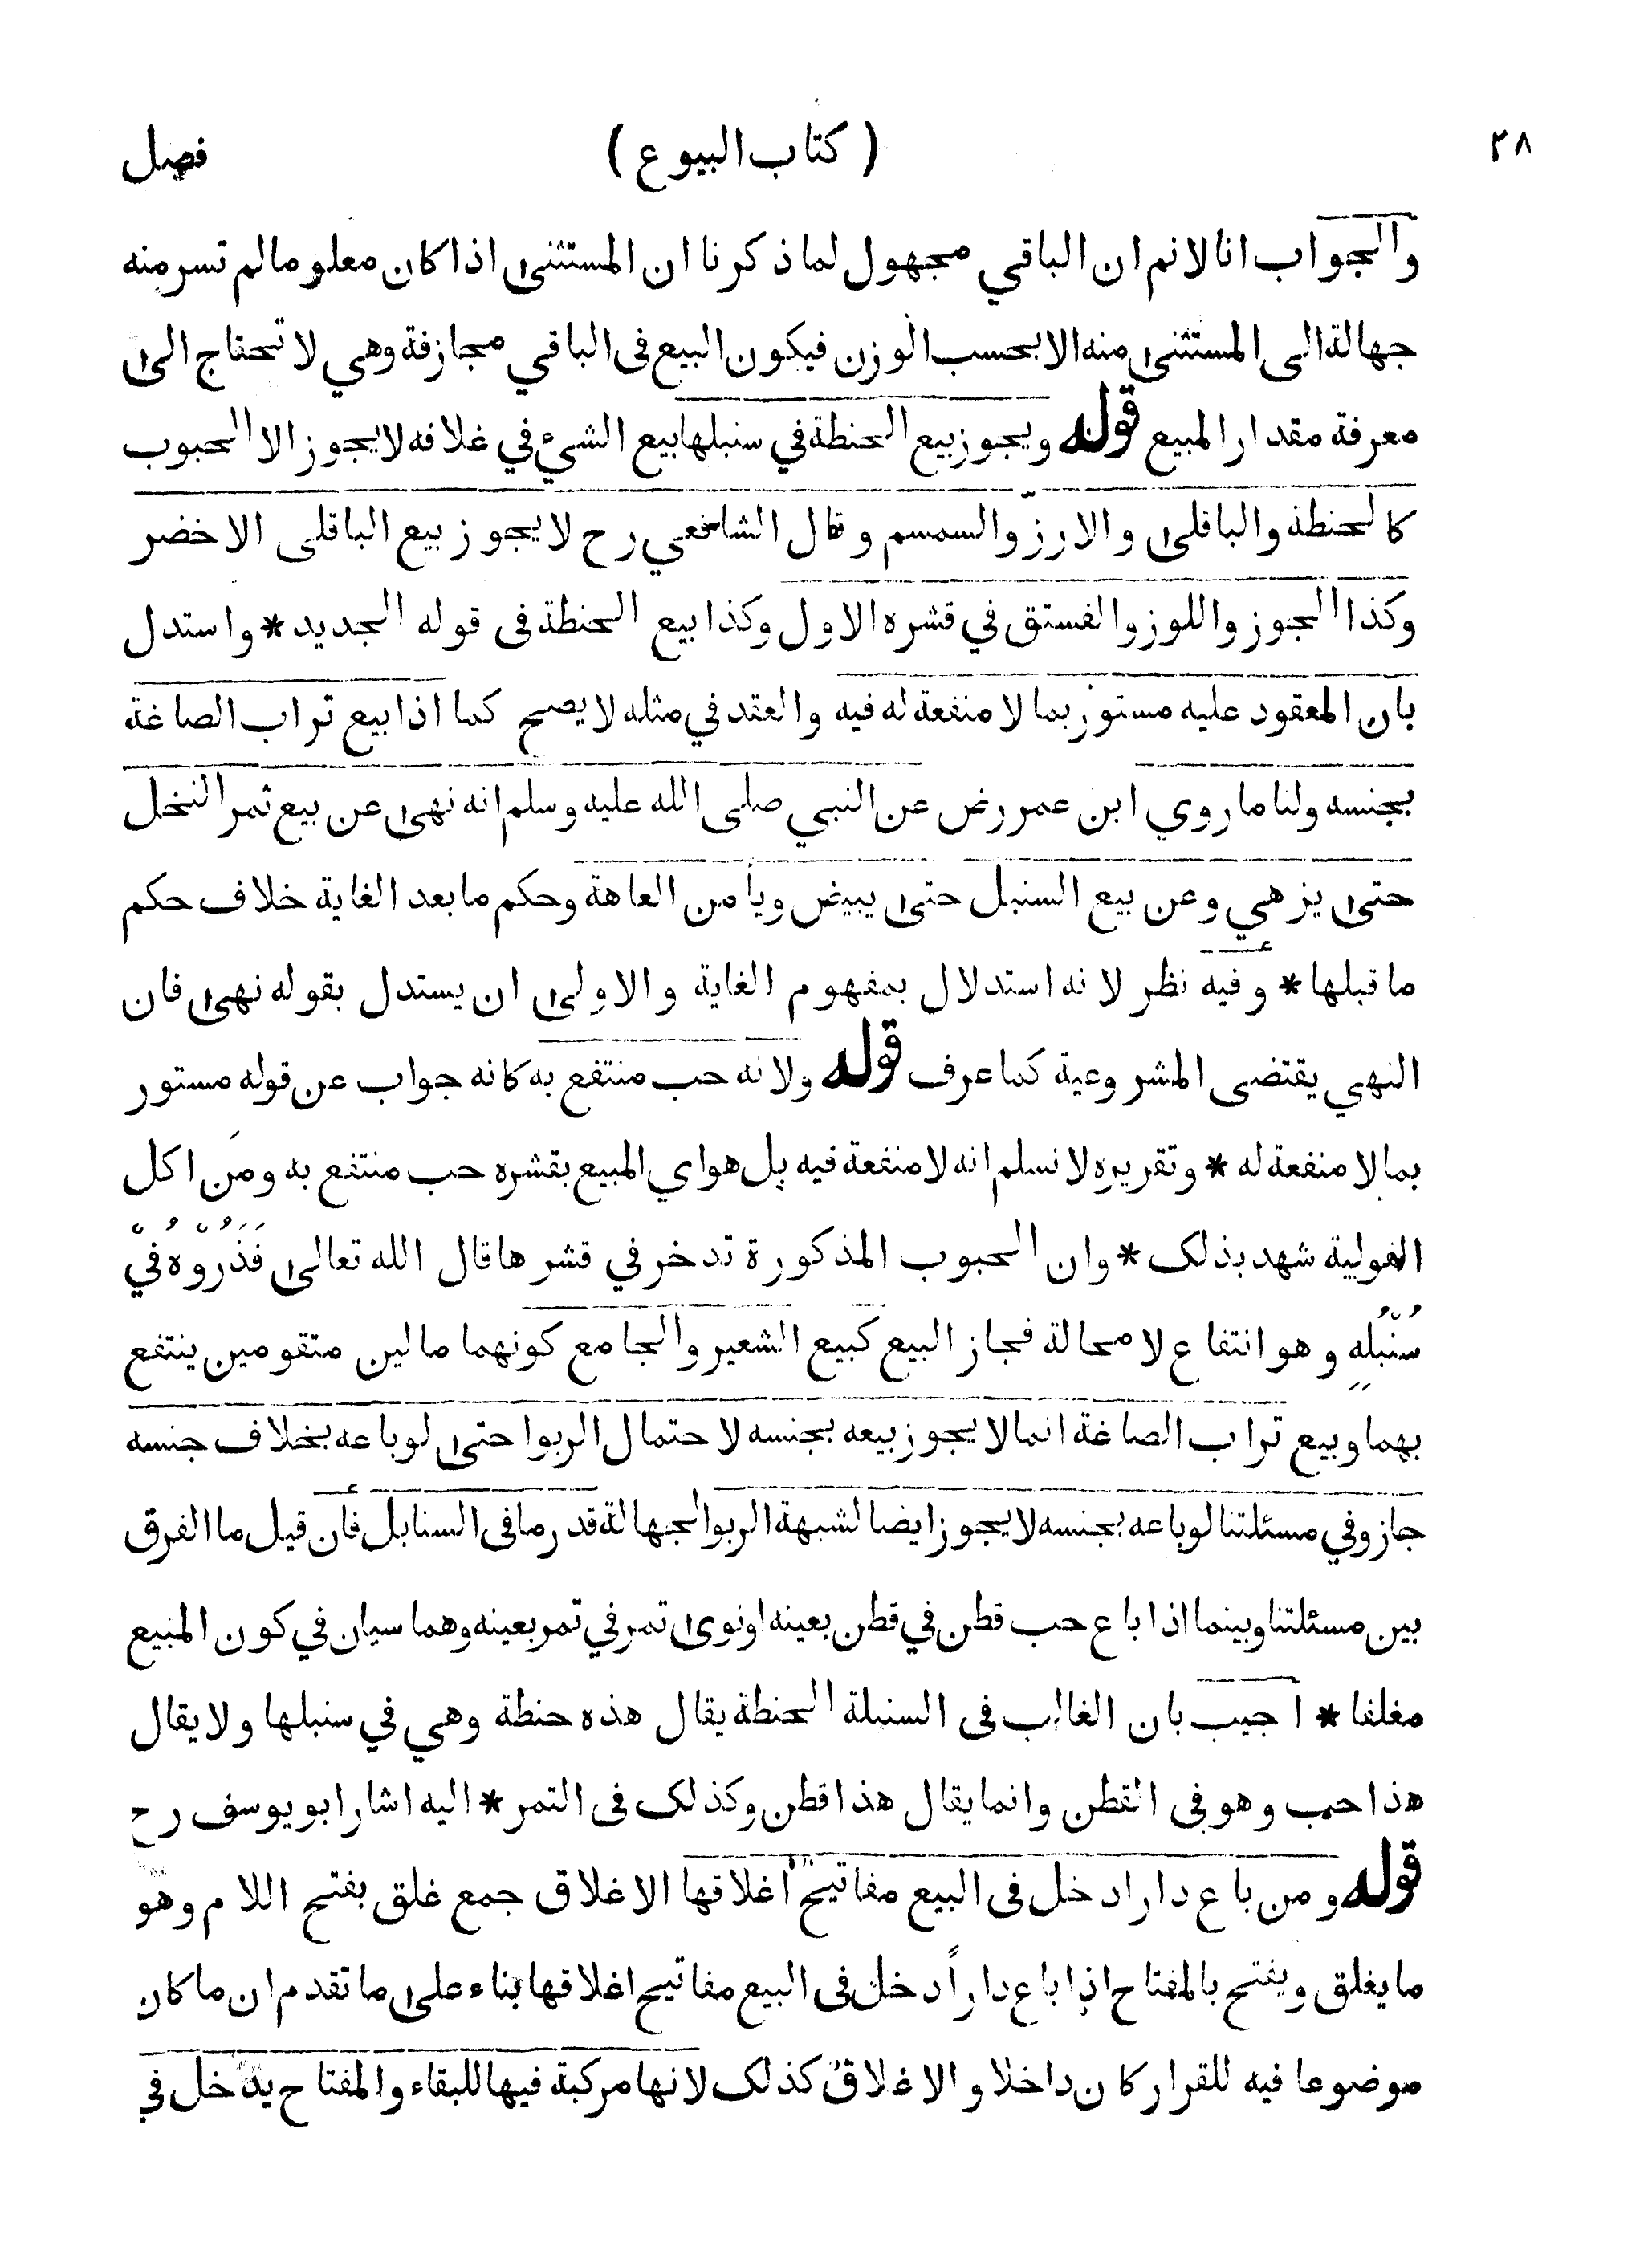 ٢٨ ( كتاب البيوع ) فصل
والجواب انا لا نم ان الباقي مجهول لما ذكرنا ان المستثنى اذا كان معلوما لم تسر منه
جهالة الى المستثنى منه الا بحسب الوزن فيكون البيع فى الباقي مجازفة وهي لا تحتاج الى
معرفة مقدار المبيع قوله ويجوز بيع الحنطة في سنبلها بيع الشيء في غلافه لا يجوز الا الحبوب
كالحنطة والباقلى والارز والسمسم وقال الشافعي رح لا يجوز بيع الباقلى الاخضر
وكذا الجوز واللوز والفستق في قشره الاول وكذا بيع الحنطة فى قوله الجديد * واستدل
بان المعقود عليه مستور بما لا منفعة له فيه والعقد في مثله لا يصح كما اذا بيع تراب الصاغة
بجنسه ولنا ما روي ابن عمر رض عن النبي صلى الله عليه وسلم انه نهى عن بيع ثمر النخل
حتى يزهي وعن بيع السنبل حتى يبيض ويأمن العاهة وحكم ما بعد الغاية خلاف حكم
ما قبلها * وفيه نظر لانه استدلال بمفهوم الغاية والاولى ان يستدل بقوله نهى فان
النهي يقتضى المشروعية كما عرف قوله ولانه حب منتفع به كانه جواب عن قوله مستور
بما لا منفعة له * وتقريره لا نسلم انه لا منفعة فيه بل هو اي المبيع بقشره حب منتفع به ومَن اكل
الفولية شهد بذلك * وان الحبوب المذكورة تدخر في قشرها قال الله تعالى فَذَرُوْهُ فِيْ
سُنْبُلِهِ وهو انتفاع لا محالة فجاز البيع كبيع الشعير والجامع كونهما مالين متقومين ينتفع
بهما وبيع تراب الصاغة انما لا يجوز بيعه بجنسه لاحتمال الربوا حتى لو باعه بخلاف جنسه
جاز وفي مسئلتنا لو باعه بجنسه لا يجوز ايضا لشبهة الربوا لجهالة قدر ما فى السنابل فأن قيل ما الفرق
بين مسئلتنا وبينما اذا باع حب قطن في قطن بعينه او نوى تمر في تمر بعينه وهما سيان في كون المبيع
مغلفا * اجيب بان الغالب فى السنبلة الحنطة يقال هذه حنطة وهي في سنبلها ولا يقال
هذا حب وهو فى القطن وانما يقال هذا قطن وكذلك فى التمر * اليه اشار ابو يوسف رح
قوله ومن باع دارا دخل فى البيع مفاتيح أغلاقها الاغلاق جمع غلق بفتح اللام وهو
ما يغلق ويفتح بالمفتاح اذا باع داراً دخل فى البيع مفاتيح اغلاقها بناء على ما تقدم ان ما كان
موضوعا فيه للقرار كان داخلا والاغلاق كذلك لانها مركبة فيها للبقاء والمفتاح يدخل في